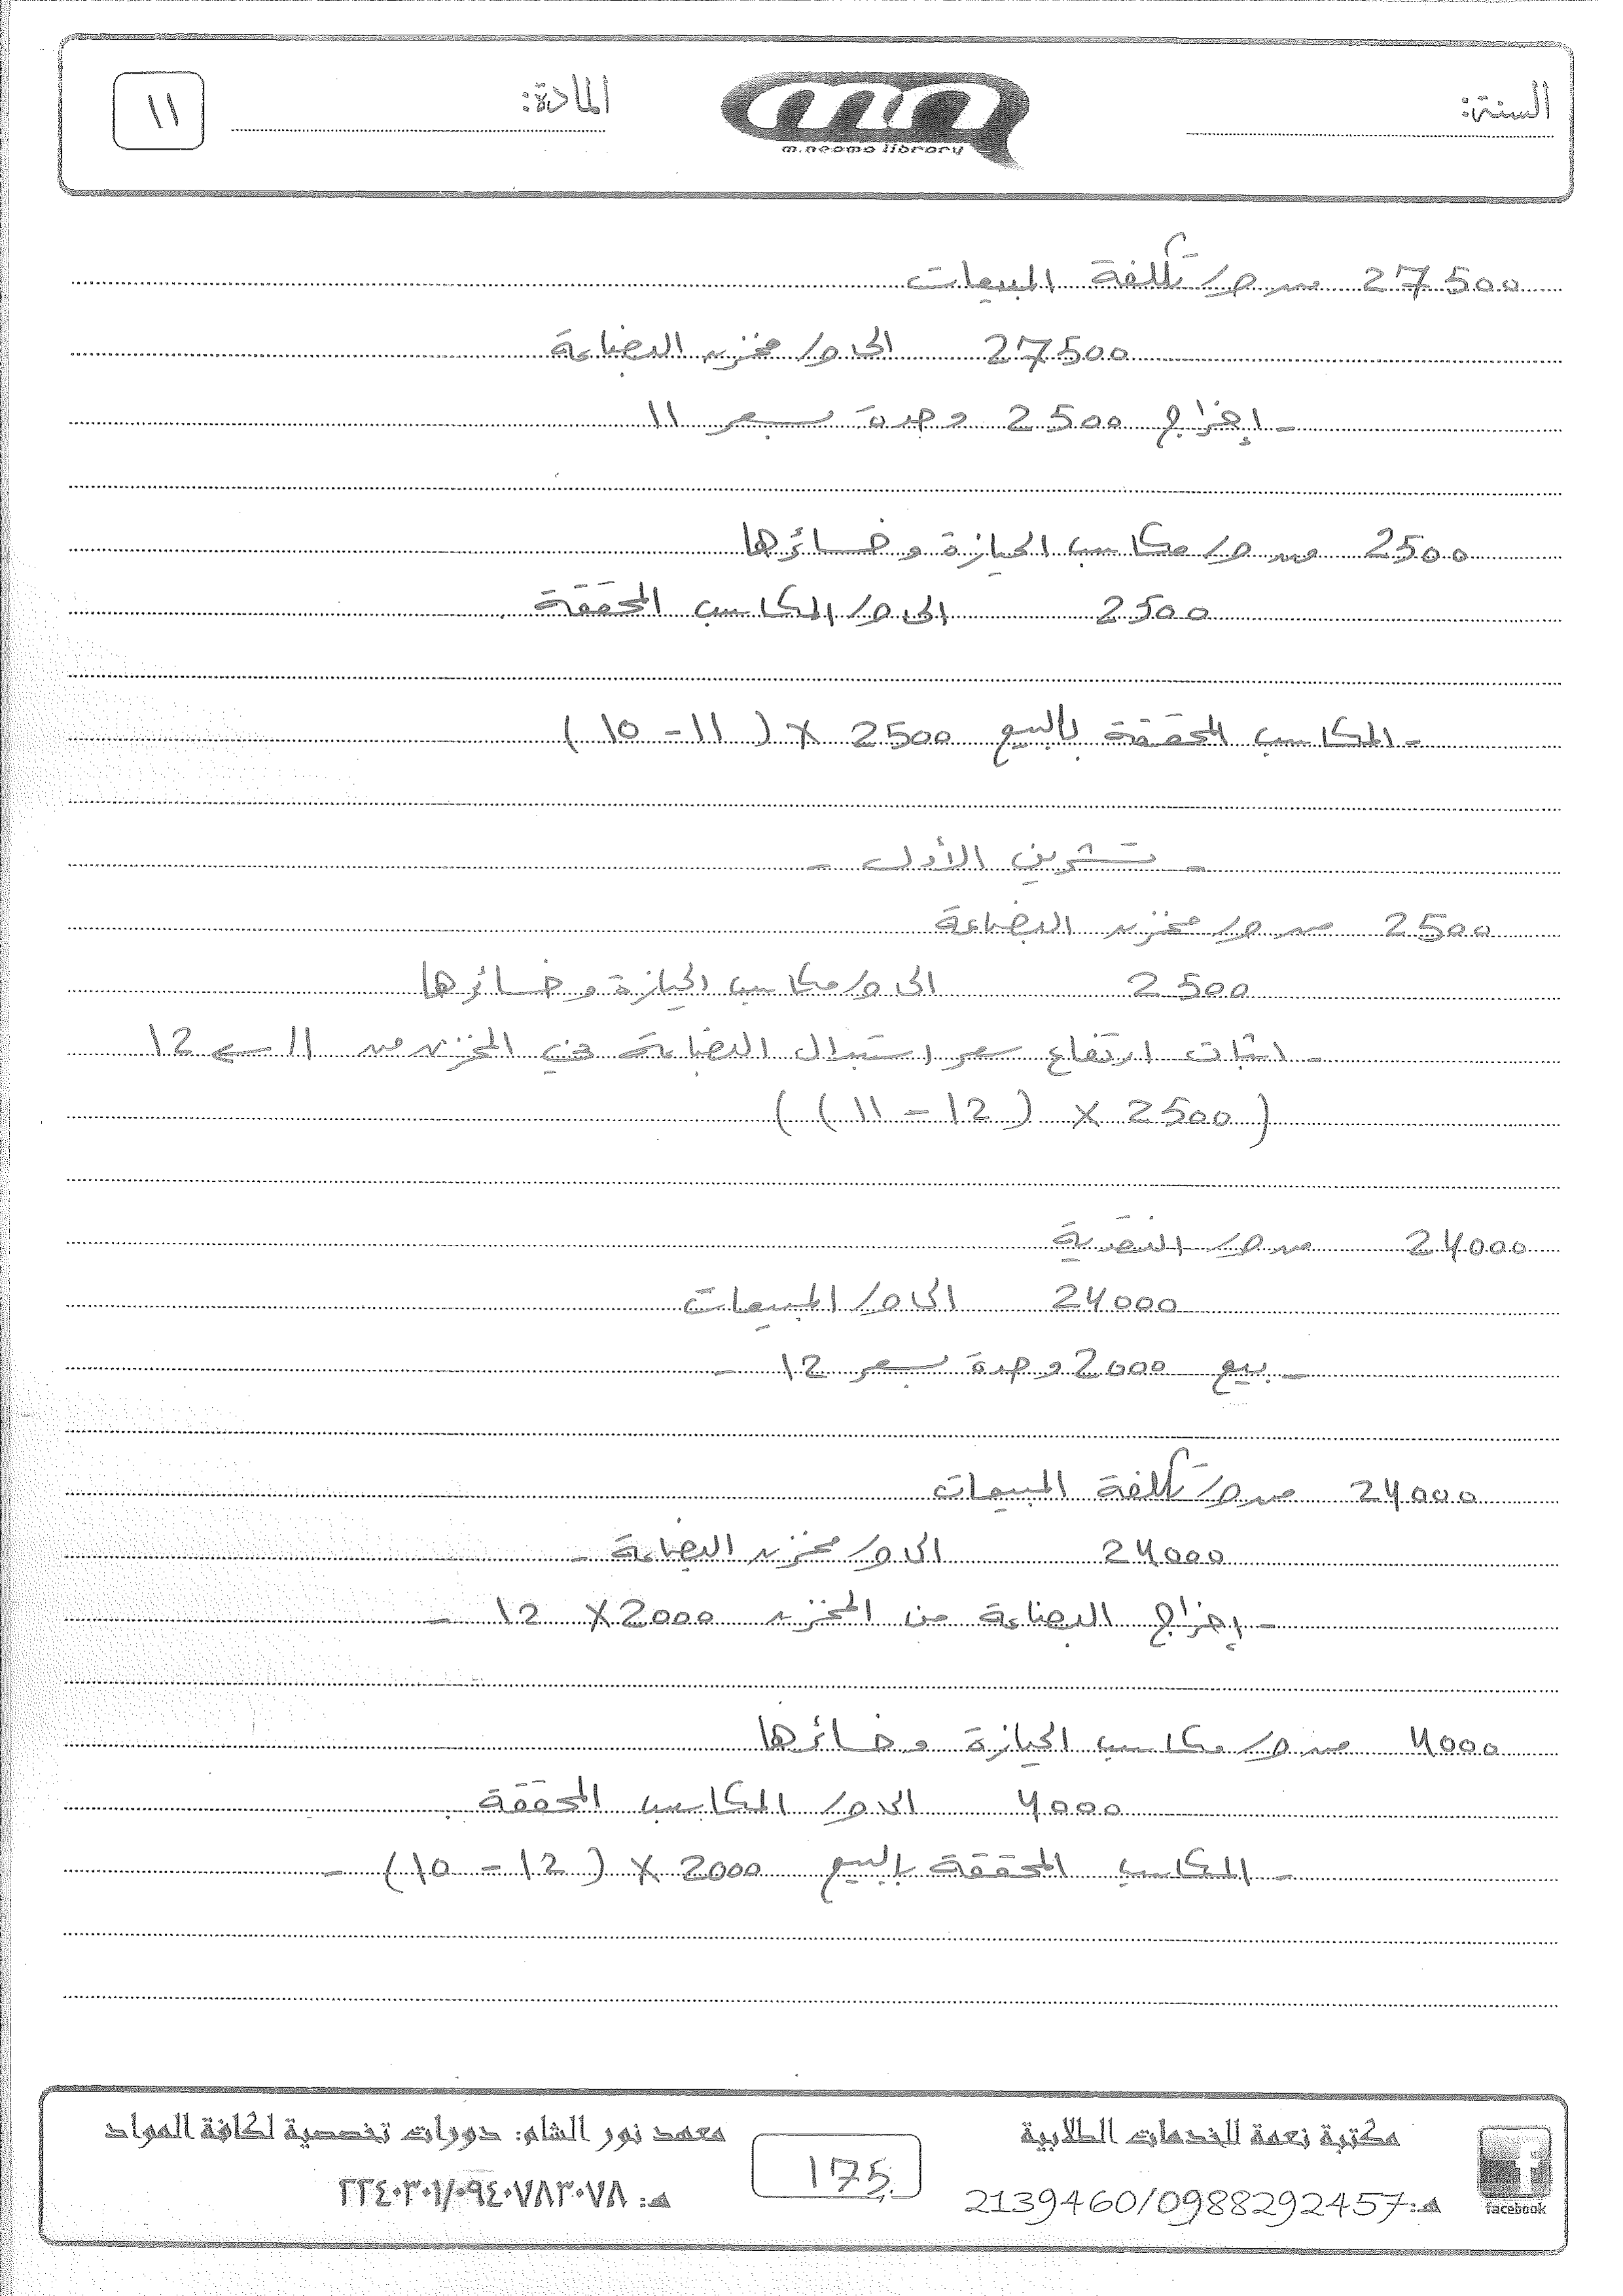 السنة:
m.neoma library
المادة:
١١
27500 من ح/ تكلفة المبيعات
27500 إلى ح/ مخزن البضاعة
- إخراج 2500 وحدة بسعر 11
2500 من ح/ مكاسب الحيازة وخسائرها
2500 إلى ح/ المكاسب المحققة
- المكاسب المحققة بالبيع 2500 × (11 - 10)
- تشرين الأول -
2500 من ح/ مخزن البضاعة
2500 إلى ح/ مكاسب الحيازة وخسائرها
- اثبات ارتفاع سعر استبدال البضاعة في المخزن من 11 ← 12
(2500 × (12 - 11))
24000 من ح/ النقدية
24000 إلى ح/ المبيعات
- بيع 2000 وحدة بسعر 12 -
24000 من ح/ تكلفة المبيعات
24000 إلى ح/ مخزن البضاعة -
- إخراج البضاعة من المخزن 2000 × 12 -
4000 من ح/ مكاسب الحيازة وخسائرها
4000 إلى ح/ المكاسب المحققة
- المكاسب المحققة بالبيع 2000 × (12 - 10) -
facebook
مكتبة نعمة للخدمات الطلابية
هـ: 2139460/0988292457
175
معهد نور الشام: دورات تخصصية لكافة المواد
هـ: ٢٢٤٠٣٠١/٠٩٤٠٧٨٣٠٧٨